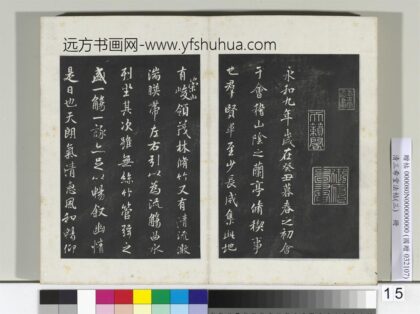 远方书画网-www.yfshuhua.com
永和九年歲在癸丑暮春之初會
于會稽山陰之蘭亭脩稧事
也群賢畢至少長咸集此地
崇山
有峻領茂林脩竹又有清流激
湍暎帶左右引以為流觴曲水
列坐其次雖無絲竹管弦之
盛一觴一詠亦足以暢敘幽情
是日也天朗氣清惠風和暢仰
15